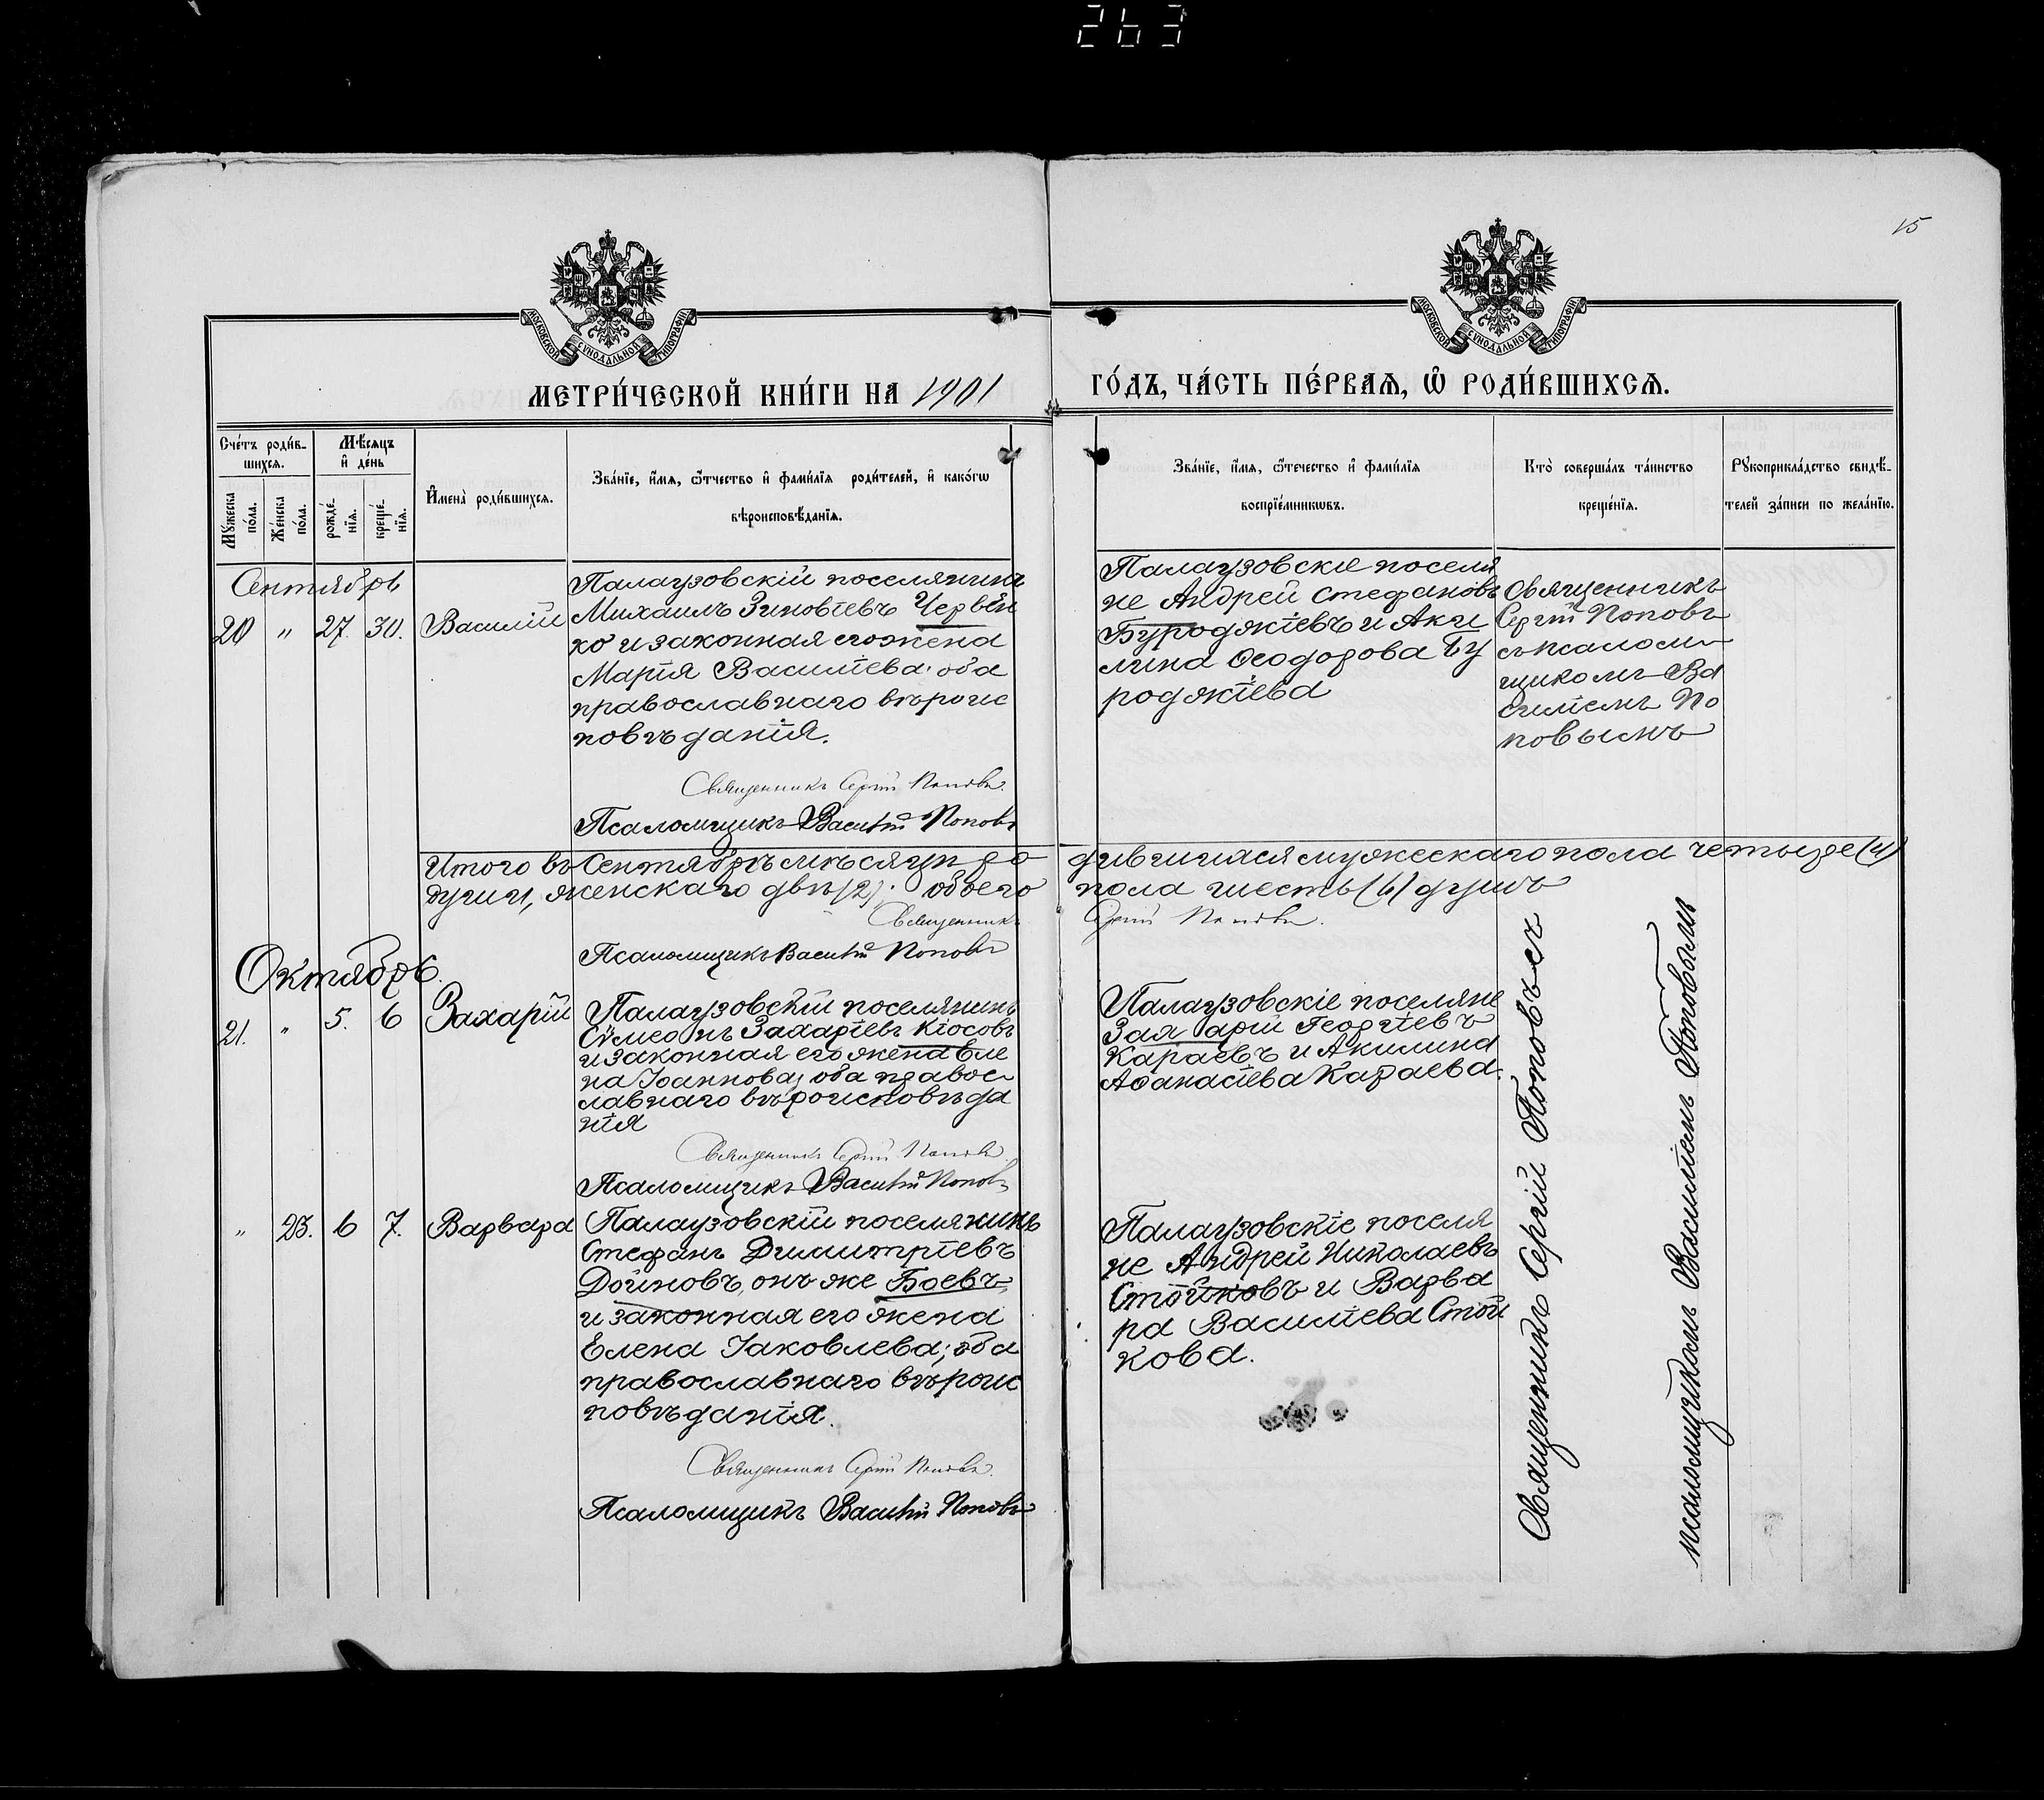 263
15
МОСКОВСКОЙ СѴНОДАЛЬНОЙ ТИПОГРАФІИ
МОСКОВСКОЙ СѴНОДАЛЬНОЙ ТИПОГРАФІИ
МЕТРИ́ЧЕСКОЙ КНИ́ГИ НА 1901
ГО́ДЪ, ЧА́СТЬ ПЕ́РВАѦ, Ѽ РОДИ́ВШИХСѦ.
Сче́тъ роди́в-
шихсѧ.
Мꙋ́жеска
по́ла.
Же́нска
по́ла.
Мѣ́сѧцъ
и҆ де́нь
рожде́-
нїѧ.
креще́-
нїѧ.
И҆мена̀ роди́вшихсѧ.
Зва́нїе, и҆́мѧ, ѻ҆́тчество и҆ фами́лїѧ роди́телей, и҆ како́гѡ
вѣроисповѣ́данїѧ.
Зва́нїе, и҆́мѧ, ѻ҆те́чество и҆ фами́лїѧ
воспрїе́мникѡвъ.
Кто̀ соверша́лъ та́инство
креще́нїѧ.
Рꙋкоприкла́дство свидѣ́-
телей за́писи по жела́нїю.
Сентябрь
20 " 27. 30. Василій
Палаузовскій поселянинъ
Михаилъ Зиновіевъ Червен
ко и законная его жена
Марія Василіева; оба
православнаго вѣроис
повѣданія.
Священникъ Сергій Поповъ.
Псаломщикъ Василій Поповъ
Палаузовскіе поселя
не Андрей Стефановъ
Буроджіевъ и Аки
лина Ѳеодорова Бу
роджіева
Священникъ
Сергій Поповъ
съ псалом
щикомъ Ва
силіемъ По
повымъ
Итого въ Сентябрѣ мѣсяцѣ ро
дившихся мужескаго пола четыре (4)
души, женскаго двѣ (2); обоего
пола шесть (6) душъ
Священникъ
Сергій Поповъ.
Псаломщикъ Василій Поповъ
Октябрь.
21. " 5. 6 Захарій
Палаузовскій поселянинъ
Сѵмеонъ Захаріевъ Кіосовъ
и законная его жена Еле
на Іоаннова, оба правос
лавнаго вѣроисповѣда
нія
Священникъ Сергій Поповъ.
Псаломщикъ Василій Поповъ
Палаузовскіе поселяне
Георгіевъ
Караевъ и Акилина
Аѳанасіева Караева.
" 23. 6 7. Варвара
Палаузовскій поселянинъ
Стефанъ Димитріевъ
Дойновъ, онъ же Боевъ,
и законная его жена
Елена Іаковлева; оба
православнаго вѣроис
повѣданія.
Священникъ Сергій Поповъ.
Псаломщикъ Василій Поповъ
Палаузовскіе поселя
не Андрей Николаевъ
Стойковъ и Варва
ра Василіева Стой
кова.
Священникъ Сергій Поповъ съ
псаломщикомъ Василіемъ Поповымъ